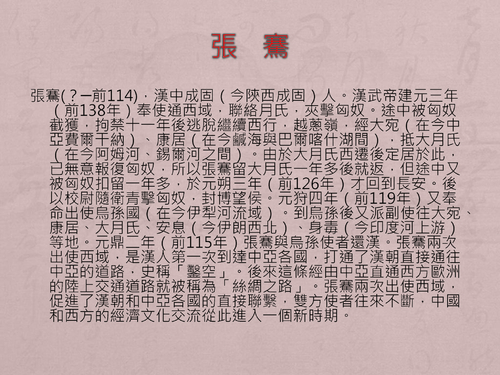 張 騫
張騫(？─前114)，漢中成固（今陝西成固）人。漢武帝建元三年
（前138年）奉使通西域，聯絡月氏，夾擊匈奴。途中被匈奴
截獲，拘禁十一年後逃脫繼續西行，越蔥嶺，經大宛（在今中
亞費爾干納）、康居（在今鹹海與巴爾喀什湖間），抵大月氏
（在今阿姆河、錫爾河之間）。由於大月氏西遷後定居於此，
已無意報復匈奴，所以張騫留大月氏一年多後就返，但途中又
被匈奴扣留一年多，於元朔三年（前126年）才回到長安。後
以校尉隨衛青擊匈奴，封博望侯。元狩四年（前119年）又奉
命出使烏孫國（在今伊犁河流域）。到烏孫後又派副使往大宛、
康居、大月氏、安息（今伊朗西北）、身毒（今印度河上游）
等地。元鼎二年（前115年）張騫與烏孫使者還漢。張騫兩次
出使西域，是漢人第一次到達中亞各國，打通了漢朝直接通往
中亞的道路，史稱「鑿空」。後來這條經由中亞直通西方歐洲
的陸上交通道路就被稱為「絲綢之路」。張騫兩次出使西域，
促進了漢朝和中亞各國的直接聯繫，雙方使者往來不斷，中國
和西方的經濟文化交流從此進入一個新時期。